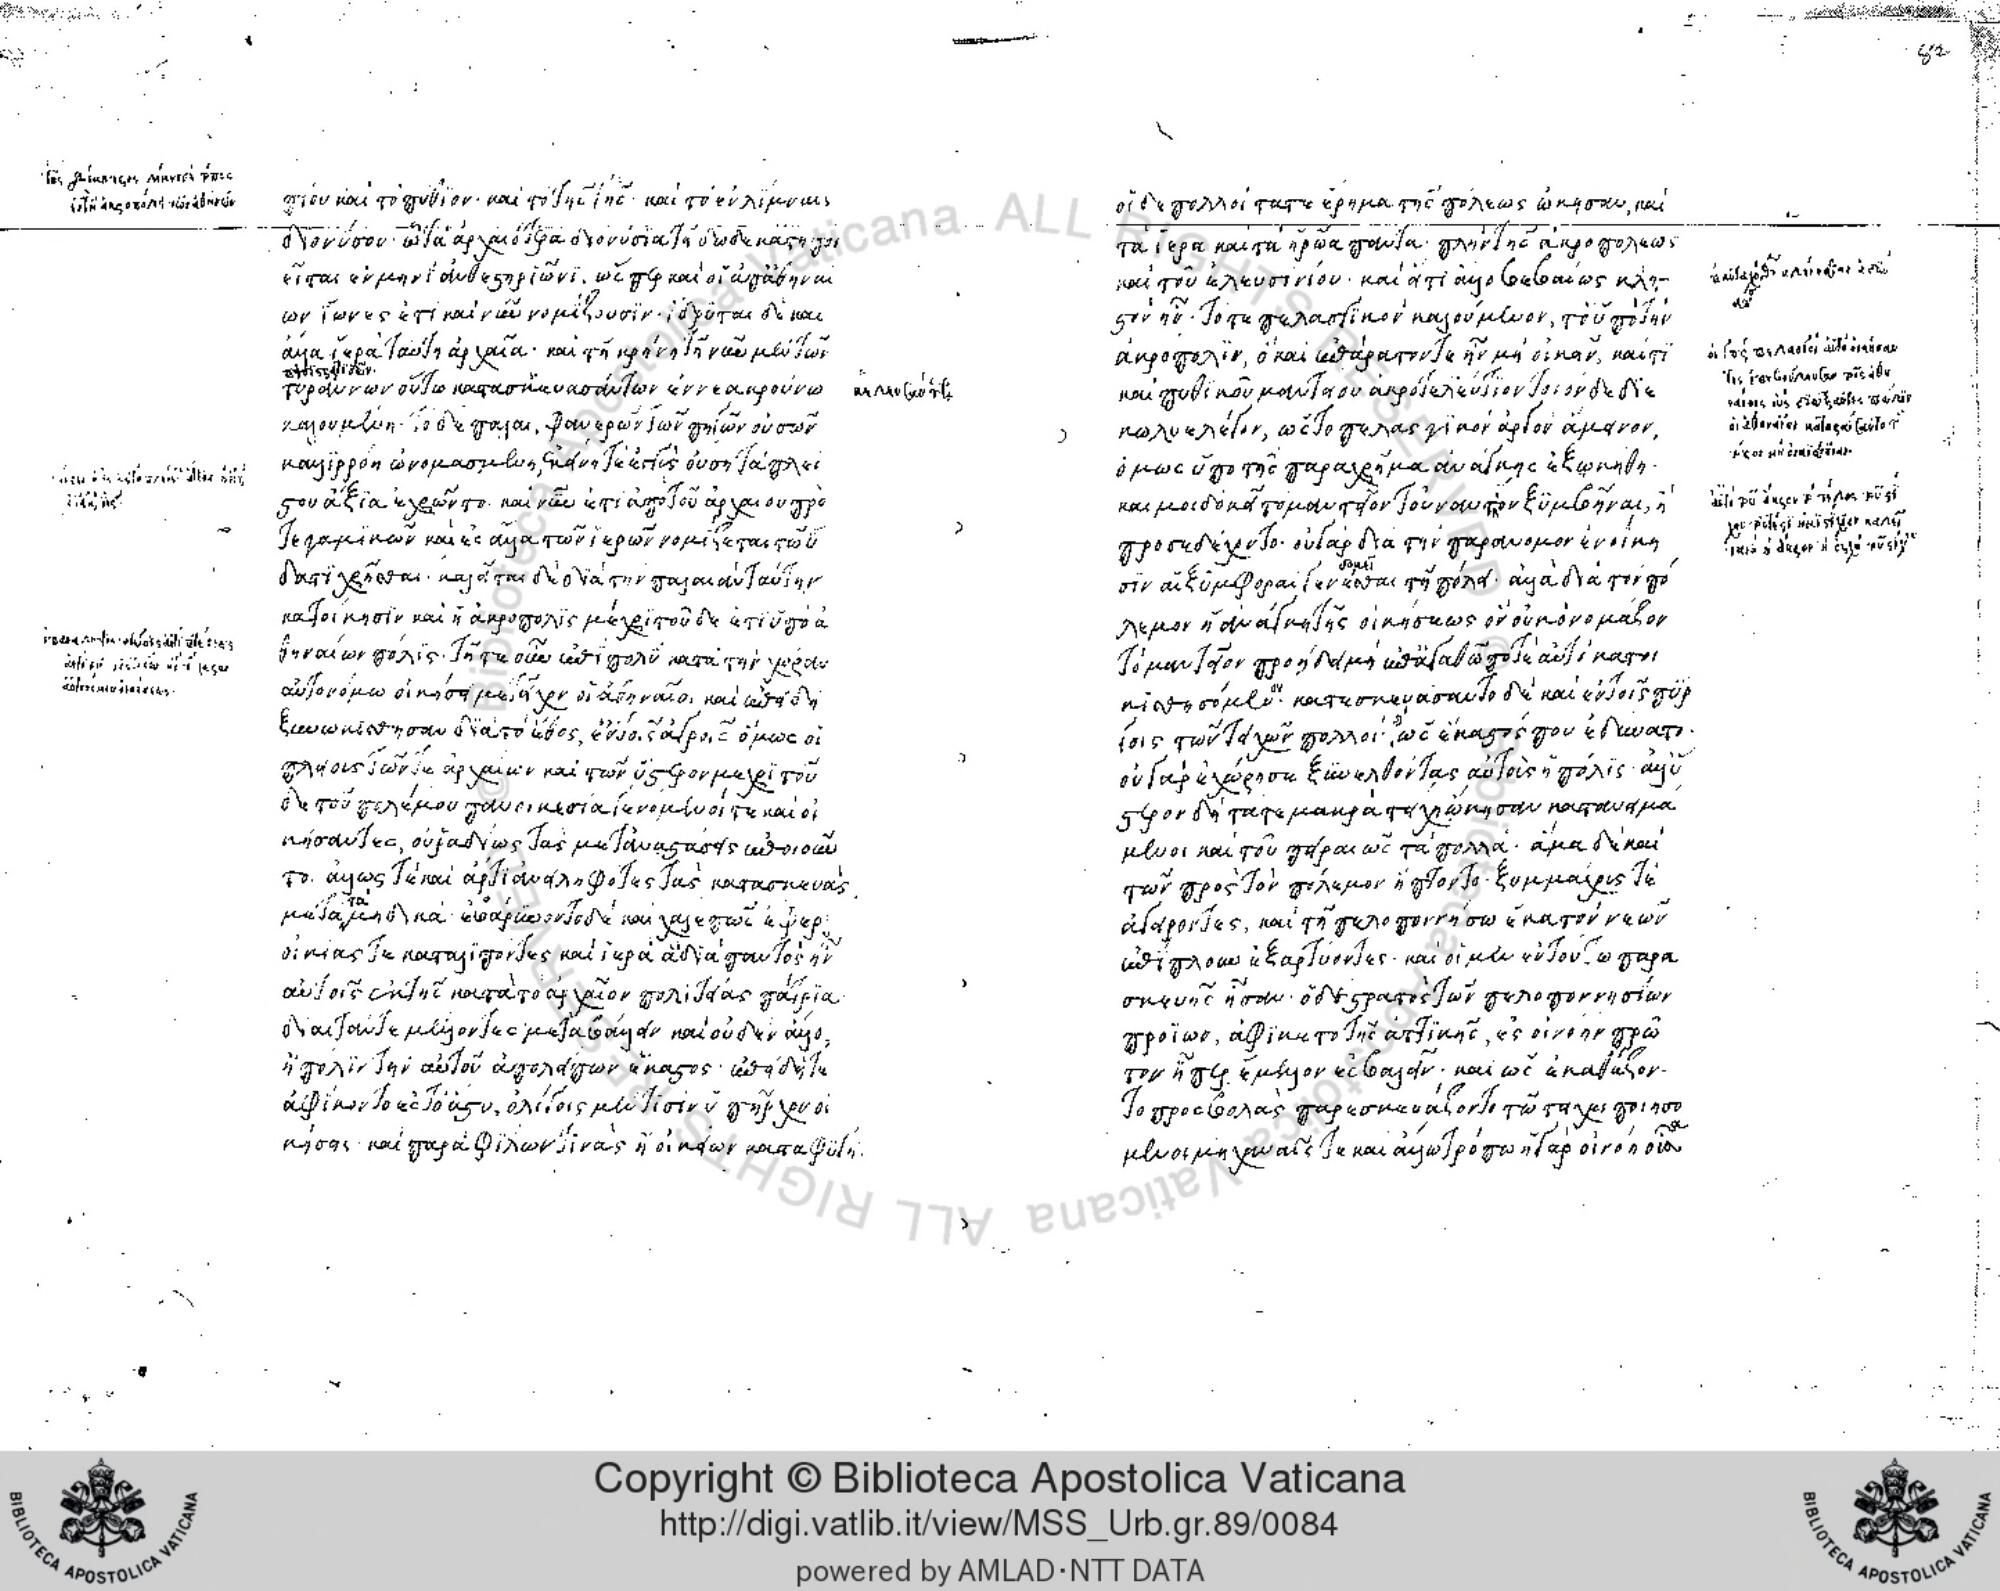 πίου καὶ τὸ πύθϊον· καὶ τὸ τῆς γῆς· καὶ τὸ ἐν λίμναις
διονύσου· ὧ τὰ ἀρχαιότερα διονύσια τῆ δωδεκάτη ποι
εῖται ἐν μηνὶ ἀνθεστηριῶνι. ὥσπερ καὶ οἱ ἀπ' ἀθηναί
ων ἴωνες ἔτι καὶ νῦν νομίζουσιν· ἵδρυται δὲ καὶ
ἄλλα ἱερὰ ταύτη ἀρχαῖα· καὶ τῆ κρήνη τῆ νῦν μὲν τῶν
τυράννων οὕτω κατασκευασάντων ἐννεακρούνω
καλουμένη· τὸ δὲ πάλαι, φανερῶν τῶν πηγῶν οὐσῶν
καλλιρρόη ὠνομασμένη, ἐκείνη τε ἐγγὺς οὔση τὰ πλεί
στου ἄξια ἐχρῶντο· καὶ νῦν ἔτι ἀπὸ τοῦ ἀρχαίου πρό
τε γαμικῶν καὶ ἐς ἄλλα τῶν ἱερῶν νομίζεται τῶ ὕ
δατι χρῆσθαι· καλεῖται δὲ διὰ τὴν παλαιὰν ταύτην
κατοίκησϊν καὶ ἡ ἀκρόπολϊς μέχρι τοῦδε ἔτι ὑπὸ ἀ
θηναίων πόλϊς· τῆ τε οὖν ἐπὶ πολὺ κατὰ τὴν χώραν
αὐτονόμω οἰκήσει μετεῖχον οἱ ἀθηναῖοι καὶ ἐπειδὴ
ξυνωκίσθησαν διὰ τὸ ἔθος, ἐν τοῖς ἀγροῖς ὅμως οἱ
πλείους τῶν τε ἀρχαίων καὶ τῶν ὕστερον μέχρι τοῦ
δε τοῦ πολέμου πανοικεσία γενόμενοί τε καὶ οἰ
κήσαντες, οὐ ῥαδίως τὰς μεταναστάσεις ἐποιοῦν
το. ἄλλως τε καὶ ἄρτι ἀνειληφότες τὰς κατασκευὰς
μετὰ τὰ μηδικά· ἐβαρύνοντο δὲ καὶ χαλεπῶς ἔφερον
οἰκίας τε καταλιπόντες καὶ ἱερὰ ἃ διὰ παντὸς ἦν
αὐτοῖς ἐκ τῆς κατὰ τὸ ἀρχαῖον πολιτείας πάτρια
δίαιτάν τε μέλλοντες μεταβάλλειν καὶ οὐδὲν ἄλλο,
ἢ πόλϊν τὴν αὑτοῦ ἀπολείπων ἕκαστος· ἐπειδή τε
ἀφίκοντο ἐς τὸ ἄστυ, ὀλίγοις μέν τισιν ὑπῆρχον οἰ
κήσεις· καὶ παρὰ φίλων τινὰς ἢ οἰκείων καταφυγή.
οἱ δὲ πολλοὶ τά τε ἔρημα τῆς πόλεως ὤκησαν, καὶ
τὰ ἱερὰ καὶ τὰ ἡρῶα πάντα· πλὴν τῆς ἀκροπόλεως
καὶ τοῦ ἐλευσινίου· καὶ εἴ τι ἄλλο βεβαίως κλη-
στὸν ἦν· τό τε πελασγικὸν καλούμενον, τὸ ὑπὸ τὴν
ἀκρόπολϊν, ὃ καὶ ἐπάρατόν τε ἦν μὴ οἰκεῖν, καί τι
καὶ πυθικοῦ μαντείου ἀκροτελεύτιον τοιόνδε διε
κώλυε λέγον, ὡς τὸ πελασγικὸν ἀργὸν ἄμεινον,
ὅμως ὑπὸ τῆς παραχρῆμα ἀνάγκης ἐξωκήθη·
καί μοι δοκεῖ τὸ μαντεῖον τοὐναντίον ξυμβῆναι, ἢ
προσεδέχοντο· οὐ γὰρ διὰ τὴν παράνομον ἐνοίκη
σϊν αἱ ξυμφοραὶ γενέσθαι τῆ πόλει· ἀλλὰ διὰ τὸν πό
λεμον ἡ ἀνάγκη τῆς οἰκήσεως ὃν οὐκ ὀνομάζον
τὸ μαντεῖον προήδει μὴ ἐπ' ἀγαθῶ ποτὲ αὐτὸ κατοι
κισθησόμενον· κατεσκευάσαντο δὲ καὶ ἐν τοῖς πύρ
γοις τῶν τειχῶν πολλοὶ, ὡς ἕκαστός που ἐδύνατο·
οὐ γὰρ ἐχώρησε ξυνελθόντας αὐτοὺς ἡ πόλϊς· ἀλλ' ὕ
στερον δὴ τά τε μακρὰ τείχη ὤκησαν κατανειμά
μενοι καὶ τοῦ πειραιῶς τὰ πολλά· ἅμα δὲ καὶ
τῶν πρὸς τὸν πόλεμον ἥπτοντο· ξυμμάχους τε
ἀγείροντες, καὶ τῆ πελοποννήσω ἑκατὸν νεῶν
ἐπίπλουν ἐξαρτύοντες· καὶ οἱ μὲν ἐν τούτω παρα
σκευῆς ἦσαν· ὁ δὲ στρατὸς τῶν πελοποννησίων
προϊὼν, ἀφίκετο τῆς ἀττικῆς, ἐς οἰνόην πρῶ
τον ἧπερ ἔμελλον ἐσβαλεῖν· καὶ ὡς ἐκαθέζον-
το προσβολὰς παρεσκευάζοντο τῶ τείχει ποιησό
μενοι μηχαναῖς τε καὶ ἄλλω τρόπω ἡ γὰρ οἰνόη οὖσα
Copyright © Biblioteca Apostolica Vaticana
http://digi.vatlib.it/view/MSS_Urb.gr.89/0084
powered by AMLAD·NTT DATA
BIBLIOTECA APOSTOLICA VATICANA
BIBLIOTECA APOSTOLICA VATICANA